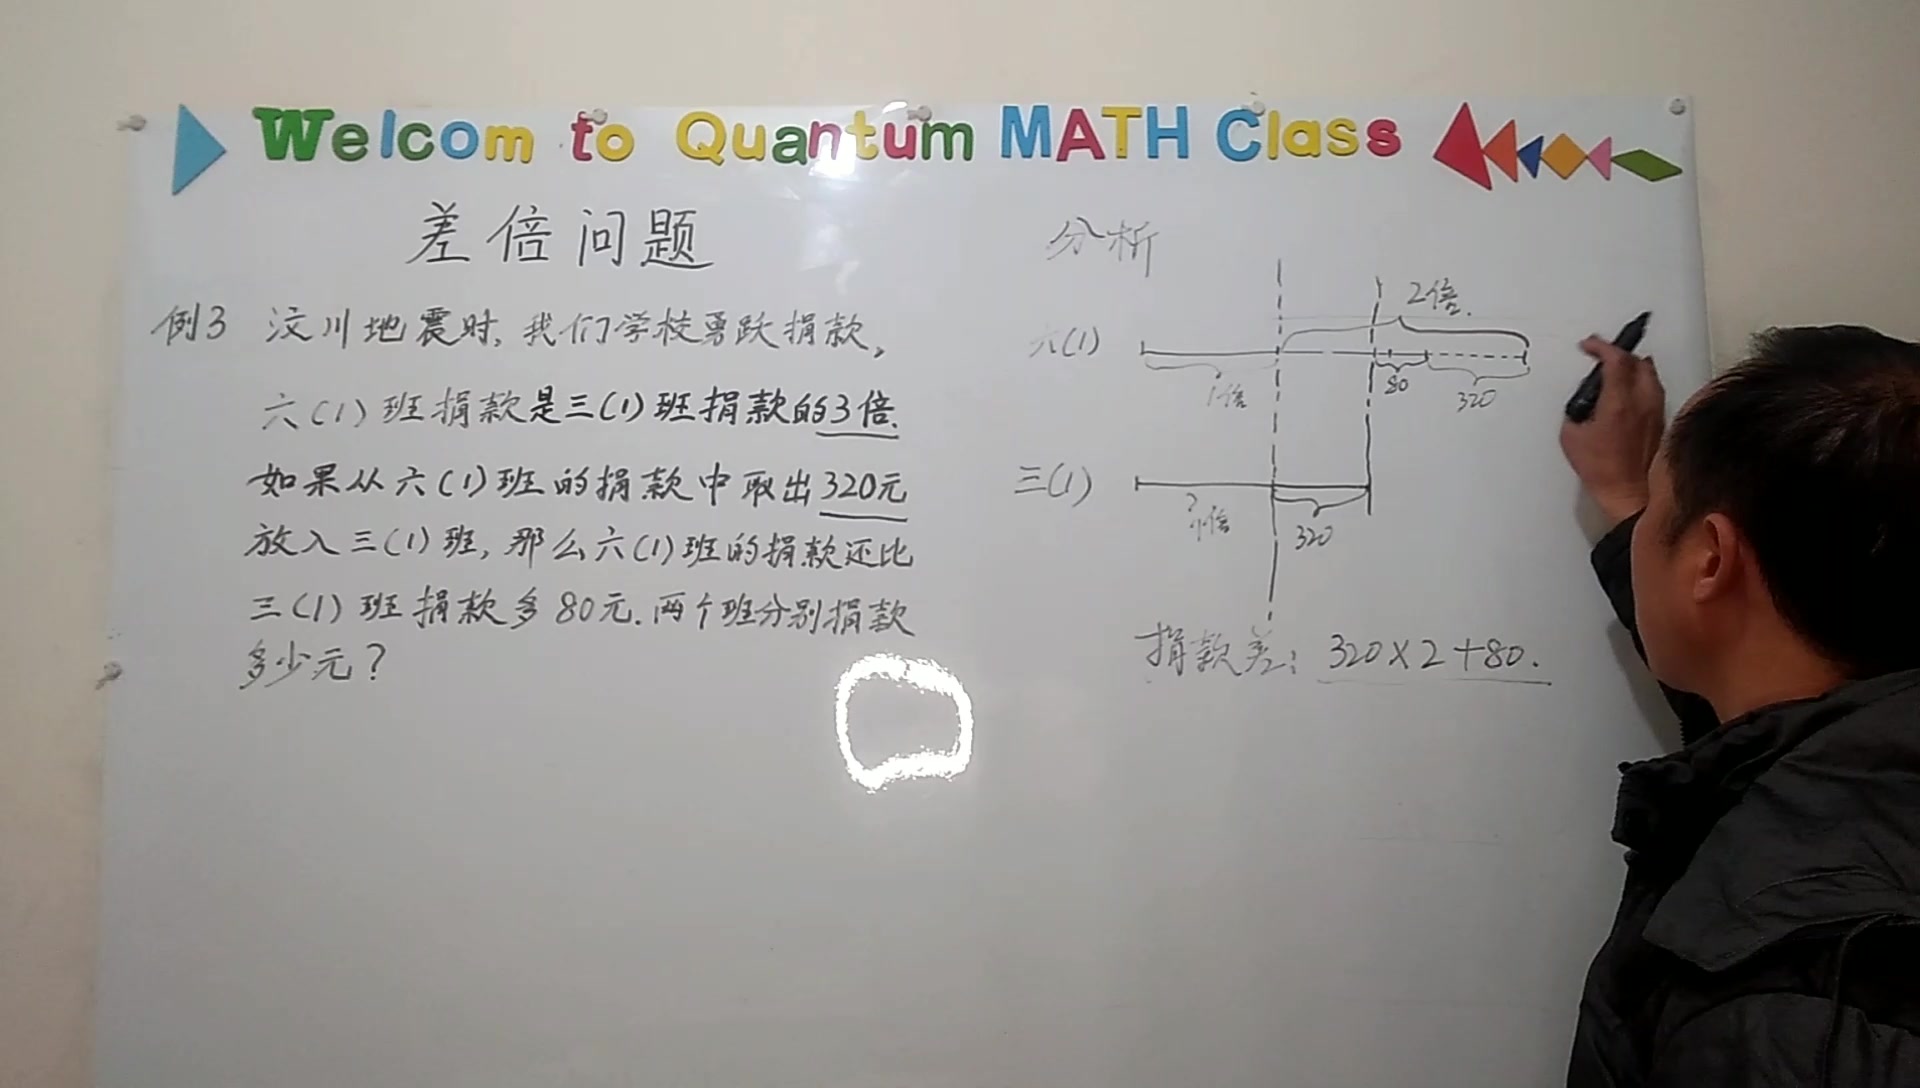 Welcom to Quantum MATH Class
差倍问题
例3 汶川地震时,我们学校勇跃捐款,
六(1)班捐款是三(1)班捐款的3倍.
如果从六(1)班的捐款中取出320元
放入三(1)班,那么六(1)班的捐款还比
三(1)班捐款多80元.两个班分别捐款
多少元?
分析
2倍.
六(1)
1倍
80
320
三(1)
?
1倍
320
捐款差: 320×2+80.